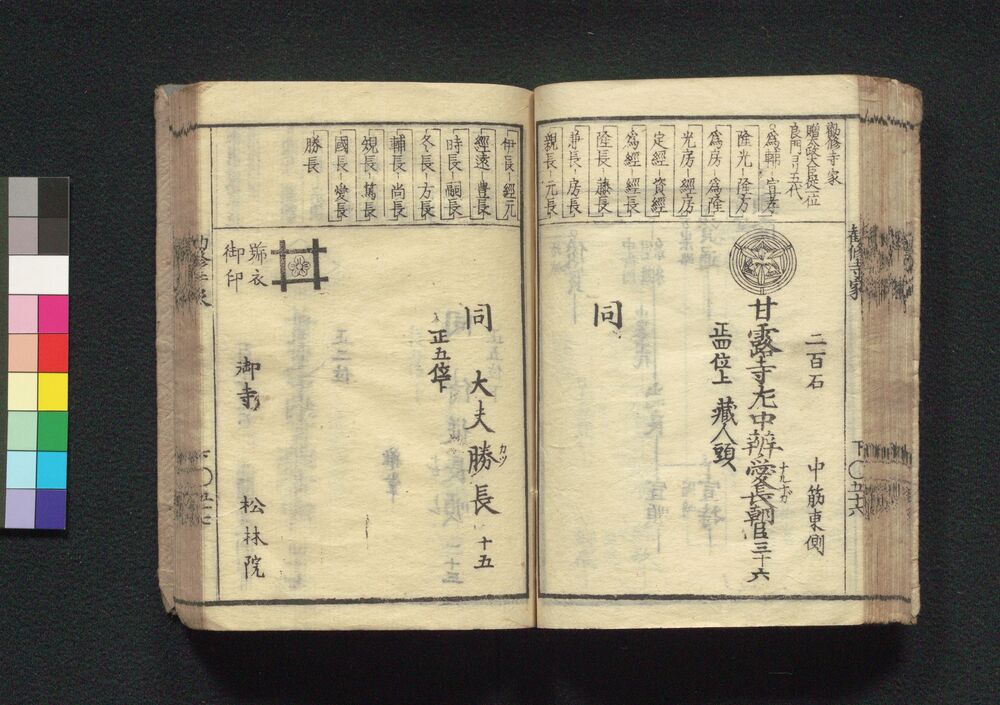 勸修寺家
贈太政大臣正一位
良門ヨリ五代
爲輔 宣孝
隆光 隆方
爲房 爲隆
光房 經房
定經 資經
爲經 經長
隆長 藤長
兼長 房長
親長 元長
伊長 經元
經遠 豊長
時長 嗣長
冬長 方長
輔長 尚長
規長 篤長
國長 愛長
勝長
二百石 中筋東側
甘露寺左中辨愛長朝臣 三十六
ナルナガ
正四位上 藏人頭
同
同 大夫勝長 十五
カツ
正五位下
御寺 松林院
號衣
御印
勸修寺家
下〇五十六